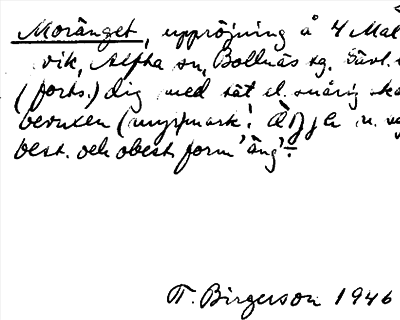 Moränget, uppröjning å 4 Mal
vik, Alfta sn, Bollnäs tg. Gävl.
(forts.) dig med tät el. snårig ska
bevuxen (myr)mark'.
best. och obest form 'äng'.
T. Birgerson 1946